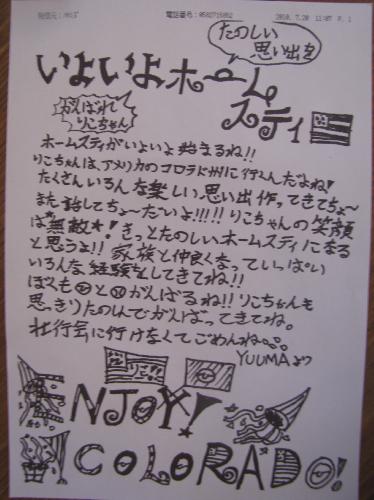 電話番号:0582715052
2010. 7.20 11:07 P. 1
たのしい
思い出を
いよいよホーム
ステイ
がんばれ
りこちゃん
ホームステイがいよいよ始まるね!!
りこちゃんは、アメリカのコロラド州に行くんだよね!
たくさんいろんな楽しい思い出作ってきてちょ〜
また話してちょ〜だ〜いよ!!!!りこちゃんの笑顔
は"無敵"!きっとたのしいホームステイになる
と思うよ!!家族と仲良くなっていっぱい
いろんな経験をしてきてね!!
ぼくも と がんばるね!!りこちゃんも
思っきりたのしんでがんばってきてね。
壮行会に行けなくてごめんね。。。
YUUMAより
ENJOY!
COLORADO!